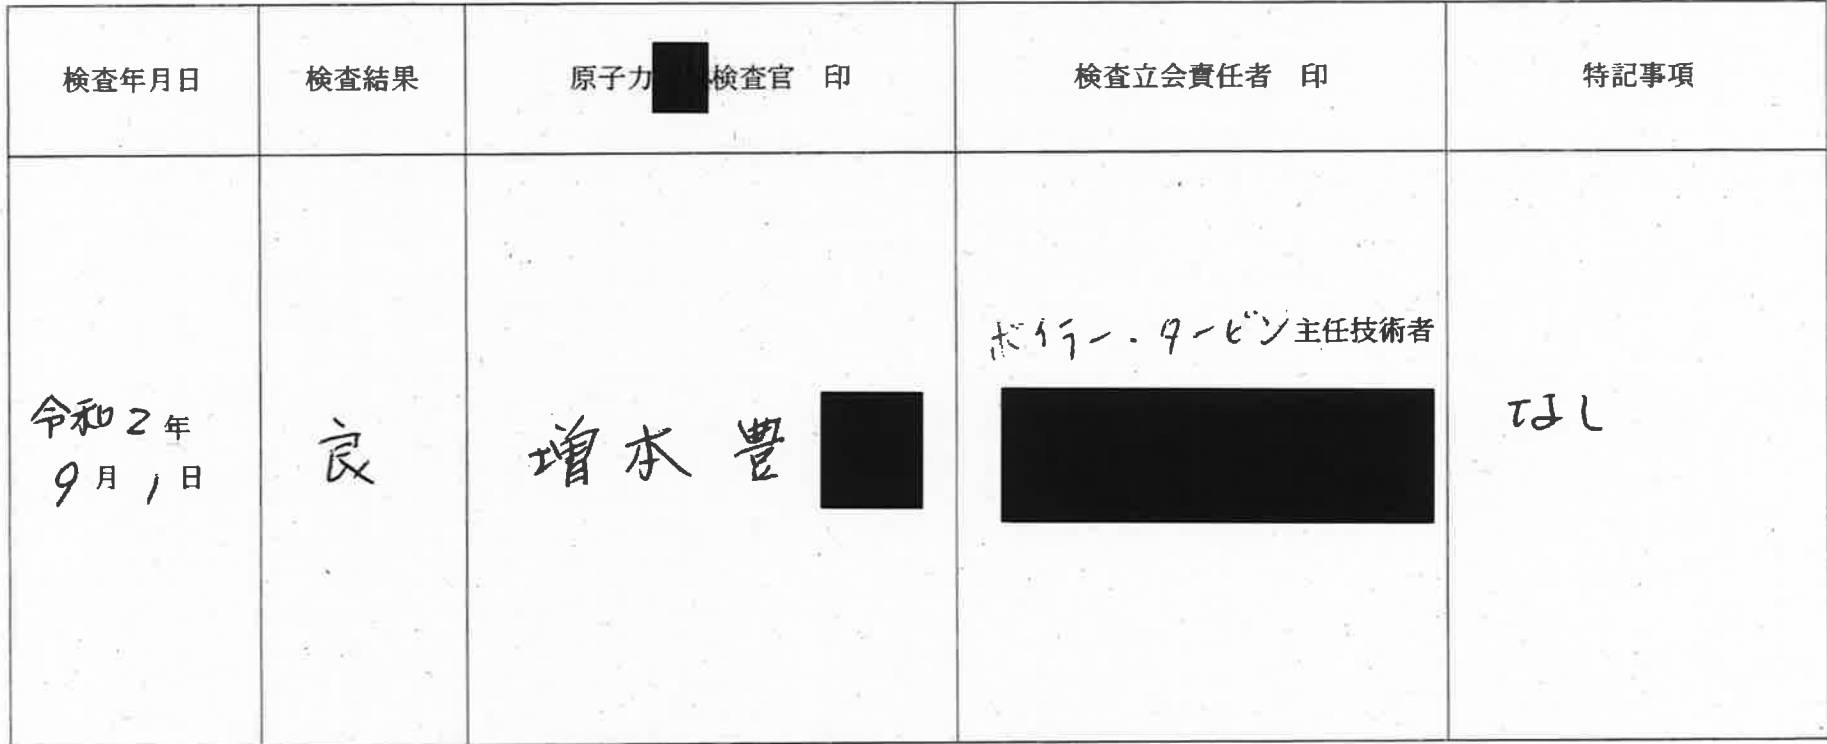 検査年月日
検査結果
原子力 検査官 印
検査立会責任者 印
特記事項
令和2年
9月1日
良
増本 豊
ボイラー・タービン主任技術者
なし